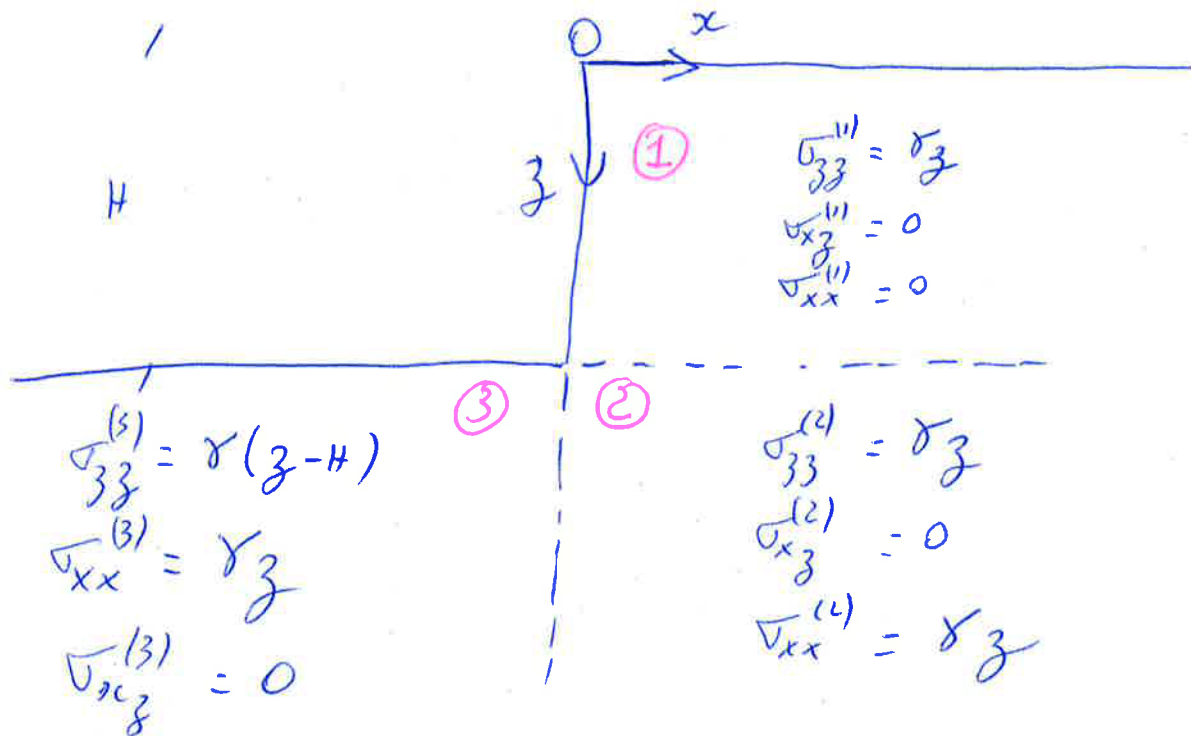 O
x
z
H
①
σzz^(1) = γz
σxz^(1) = 0
σxx^(1) = 0
③
②
σzz^(3) = γ(z-H)
σxx^(3) = γz
σxz^(3) = 0
σzz^(2) = γz
σxz^(2) = 0
σxx^(2) = γz